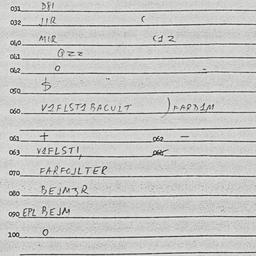 031 DPI
032 JIR (
040 MIR (12
041 Qzz
042 0 =
050 $
060 V1FLST1BACUIT )FARD1M
061 + 062 -
063 V1FLSTI,
070 FARFOJLTER
080 BEJM3R
090 EPL BEJM
100 0